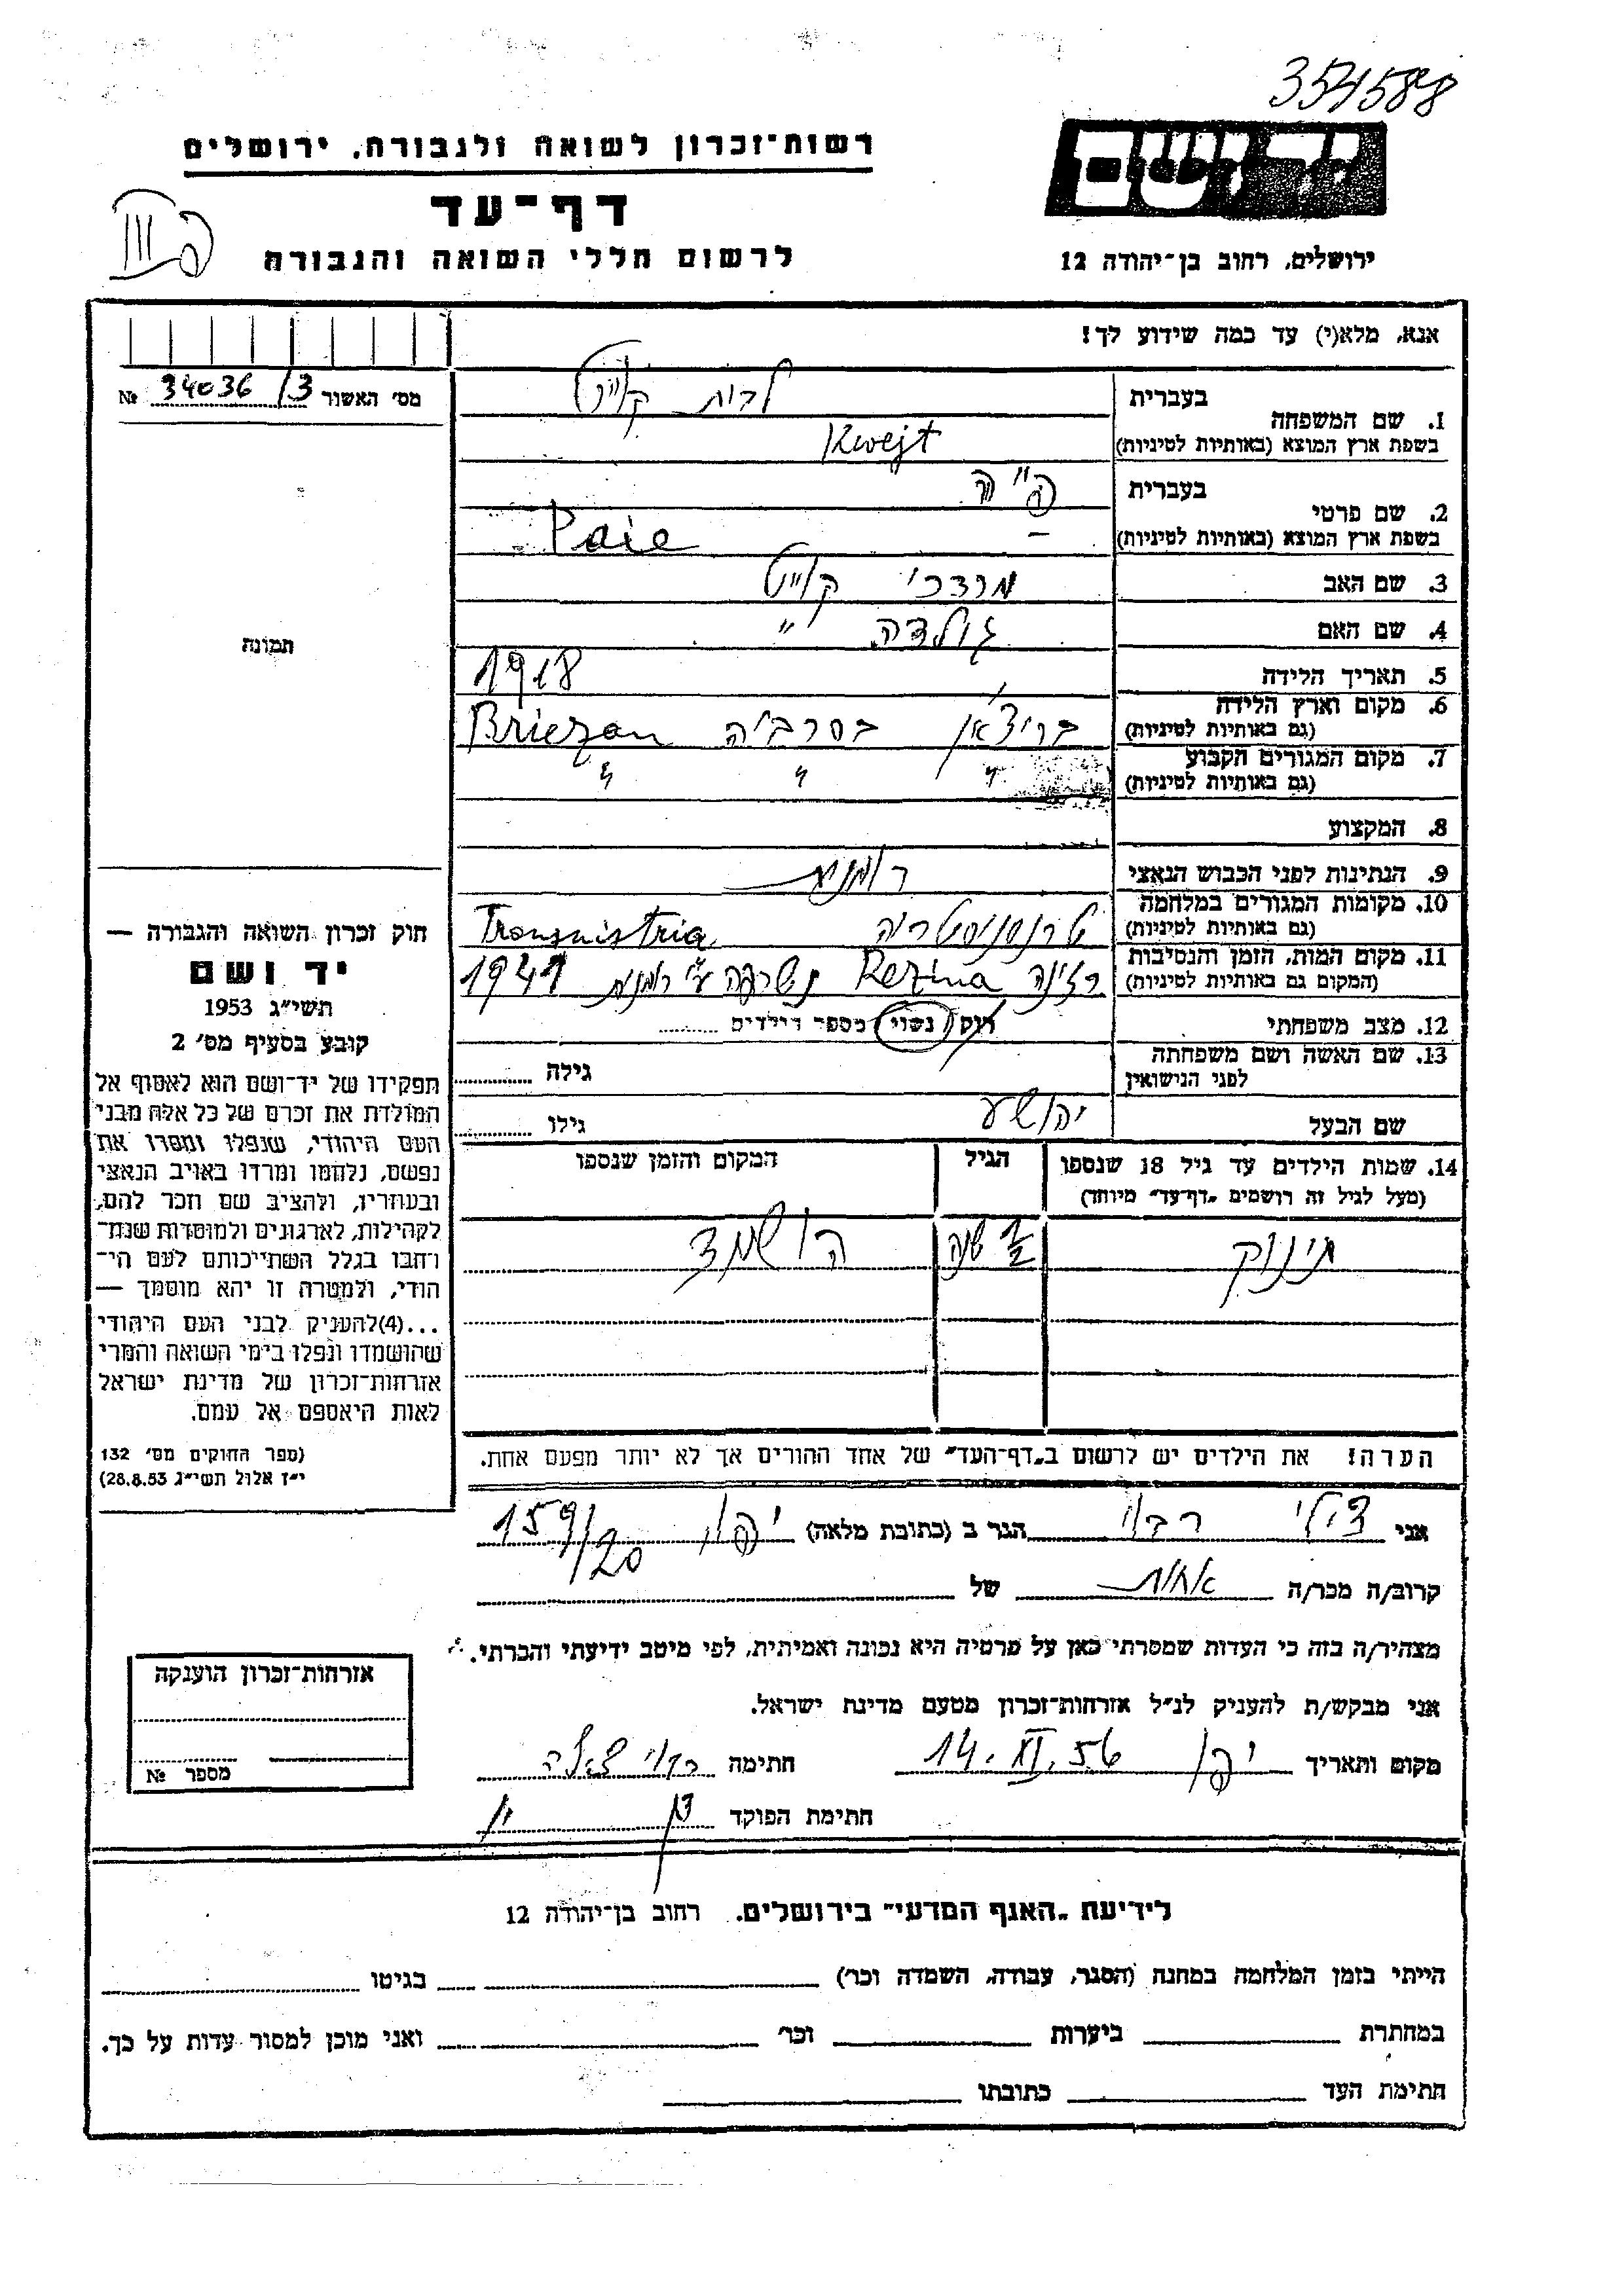 354588
רשות־זכרון לשואה ולגבורה, ירושלים
יד ושם
דף־עד
לרשום חללי השואה והגבורה
ירושלים, רחוב בן־יהודה 12
אנא, מלא(י) עד כמה שידוע לך!
מס׳ האשור 34036/3 №
תמונה
1. שם המשפחה
בעברית קווייט
בשפת ארץ המוצא (באותיות לטיניות) Kwejt
2. שם פרטי
בעברית פייה
בשפת ארץ המוצא (באותיות לטיניות) – Paie
3. שם האב מרדכי קווייט
4. שם האם גולדה "
5. תאריך הלידה 1918
6. מקום וארץ הלידה
(גם באותיות לטיניות) בריצ'אן בסרביה Briezan
7. מקום המגורים הקבוע
(גם באותיות לטיניות) " " "
8. המקצוע
9. הנתינות לפני הכבוש הנאצי רומנית
10. מקומות המגורים במלחמה
(גם באותיות לטיניות) טרנסניסטריה Transnistria
11. מקום המות, הזמן והנסיבות
(המקום גם באותיות לטיניות) רזינה Rezina נשרפה ע"י רומנית 1941
12. מצב משפחתי רוק/נשוי מספר הילדים
13. שם האשה ושם משפחתה
לפני הנישואין גילה
שם הבעל יהושע גילו
14. שמות הילדים עד גיל 18 שנספו הגיל המקום והזמן שנספו
(מעל לגיל זה רושמים „דף־עד״ מיוחד)
תינוק 1/2 שנה הושמד
הערה! את הילדים יש לרשום ב„דף־העד״ של אחד ההורים אך לא יותר מפעם אחת.
חוק זכרון השואה והגבורה —
יד ושם
תשי״ג 1953
קובע בסעיף מס׳ 2
תפקידו של יד־ושם הוא לאסוף אל
המולדת את זכרם של כל אלה מבני
העם היהודי, שנפלו ומסרו את
נפשם, נלחמו ומרדו באויב הנאצי
ובעוזריו, ולהציב שם וזכר להם,
לקהילות, לארגונים ולמוסדות שנח־
רבו בגלל השתייכותם לעם הי־
הודי, ולמטרה זו יהא מוסמך —
...(4)להעניק לבני העם היהודי
שהושמדו ונפלו בימי השואה והמרי
אזרחות־זכרון של מדינת ישראל
לאות היאספם אל עמם.
(ספר החוקים מס׳ 132
י״ז אלול תשי״ג 28.8.53)
אני צילי רבוי הגר ב (כתובת מלאה) יפו 159/20
קרוב/ה מכר/ה אחות של
מצהיר/ה בזה כי העדות שמסרתי כאן על פרטיה היא נכונה ואמיתית, לפי מיטב ידיעתי והכרתי.
אני מבקש/ת להעניק לנ״ל אזרחות־זכרון מטעם מדינת ישראל.
מקום ותאריך יפו 14.XI.56 חתימה רבוי צילה
חתימת הפוקד
אזרחות־זכרון הוענקה
מספר №
לידיעת „האגף המדעי״ בירושלים, רחוב בן־יהודה 12
הייתי בזמן המלחמה במחנה (הסגר, עבודה, השמדה וכר׳) בגיטו
במחתרת ביערות וכר׳ ואני מוכן למסור עדות על כך.
חתימת העד כתובתו